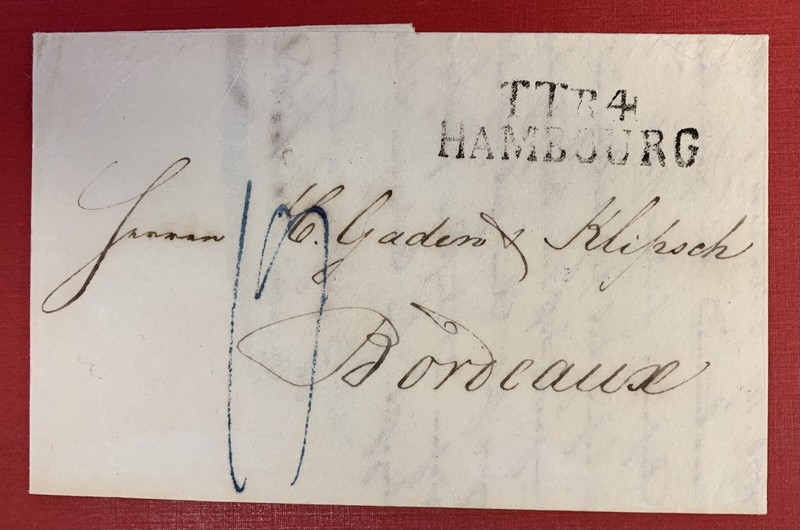 TTR4
HAMBOURG
Herren H. Gaden & Klipsch
Bordeaux